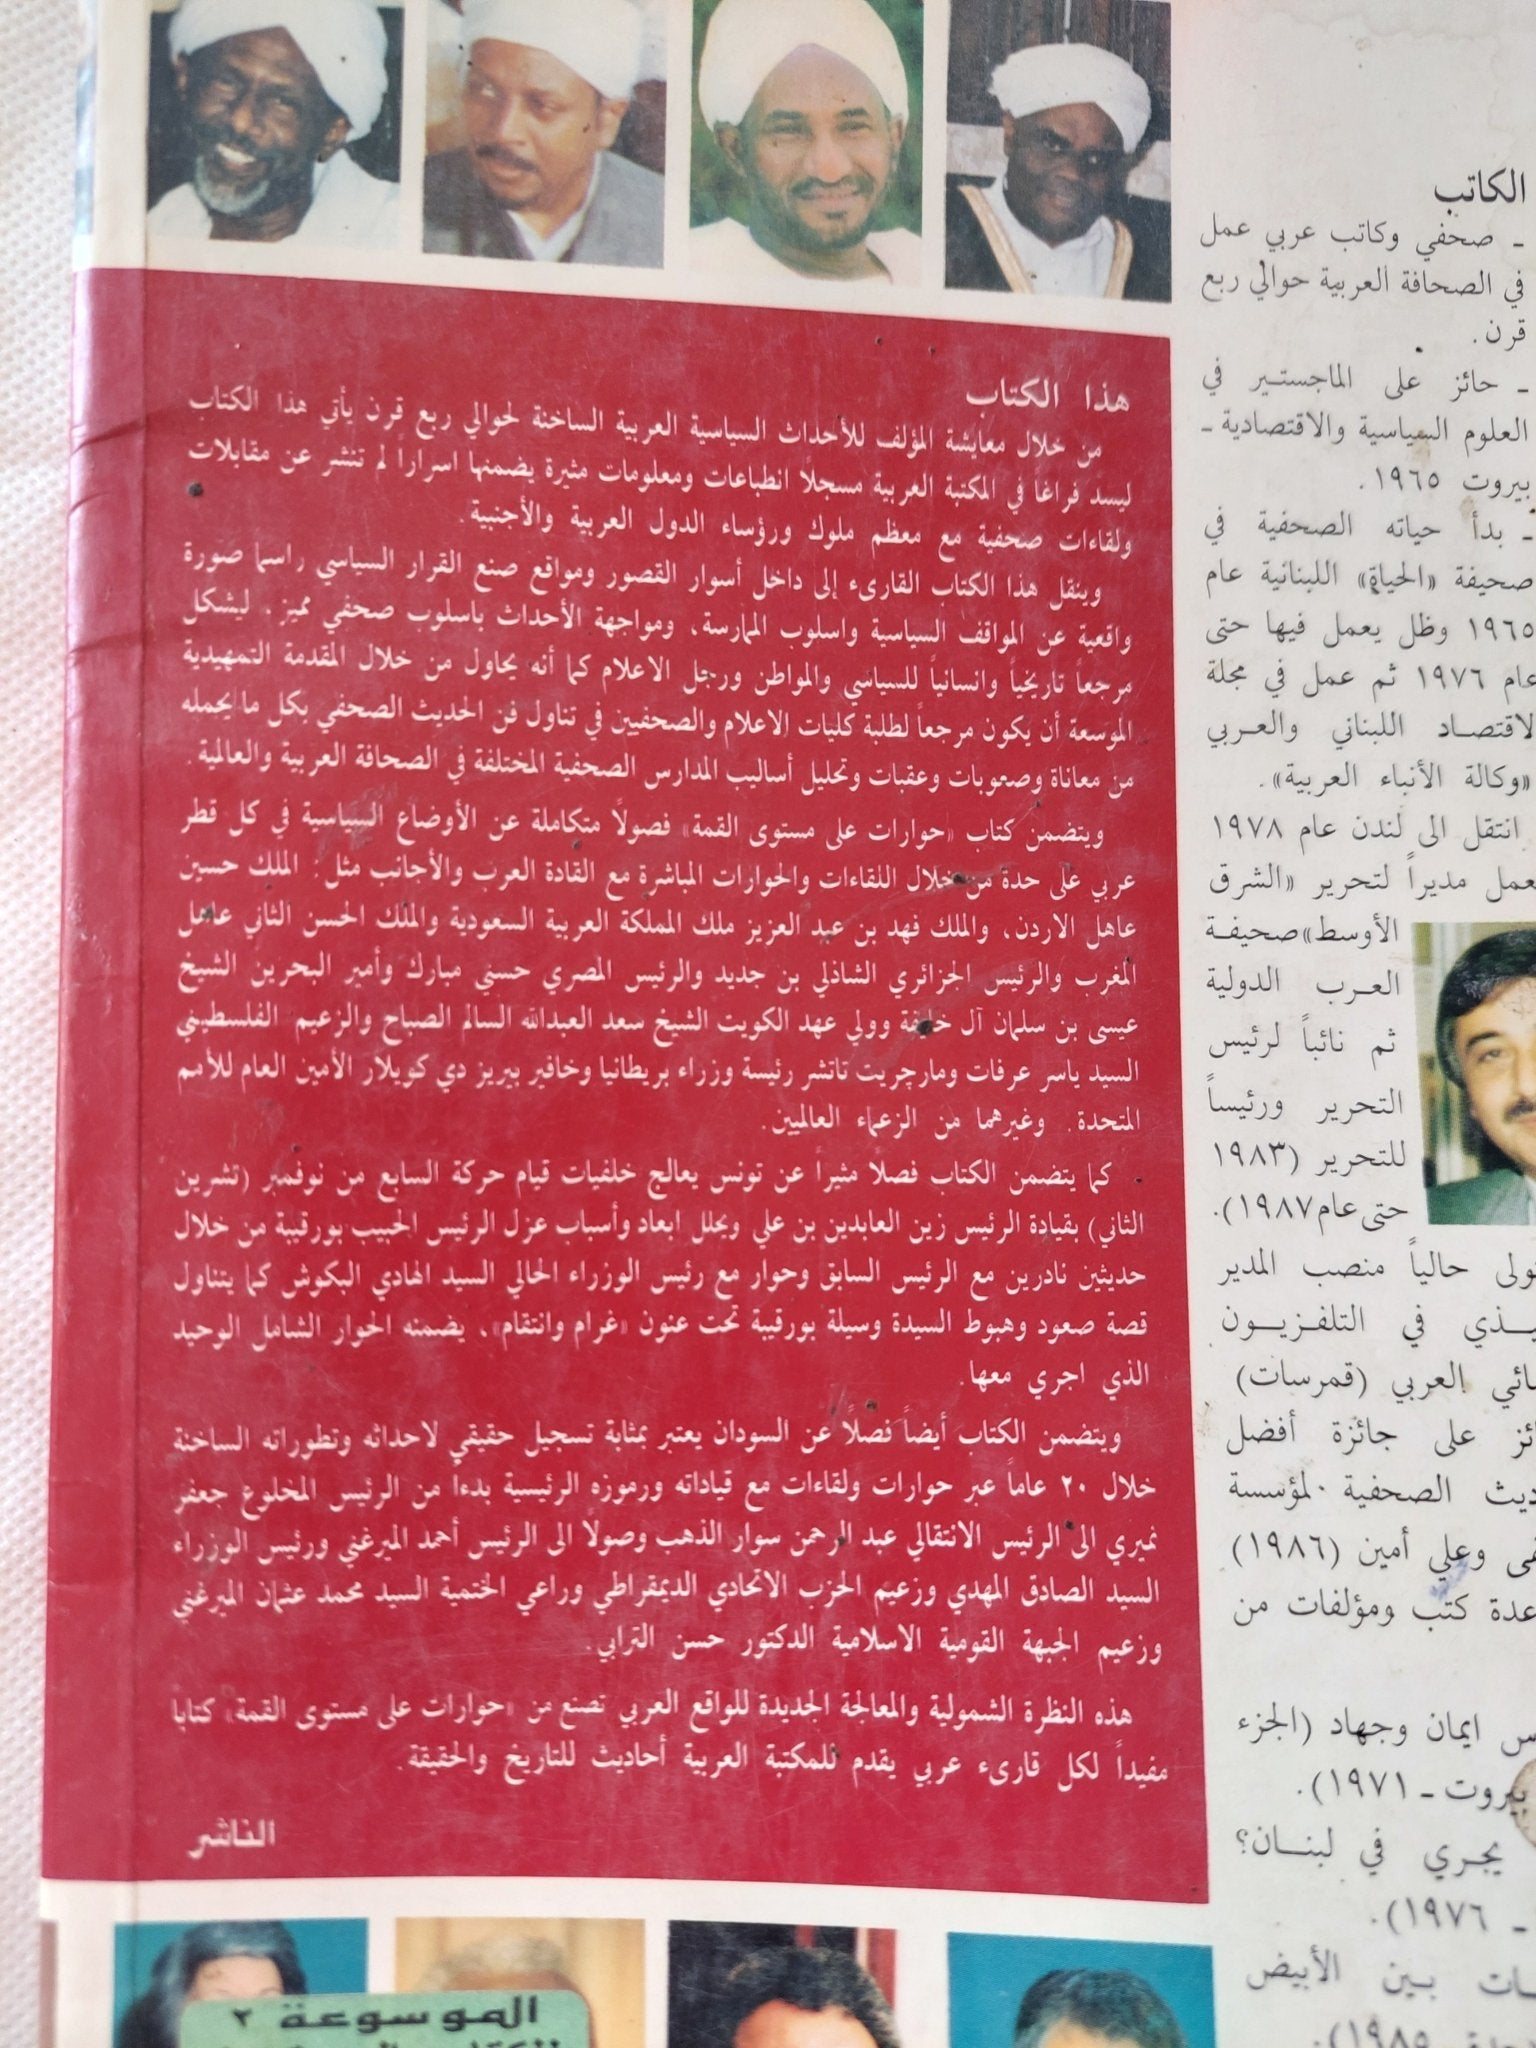 هذا الكتاب
من خلال معايشة المؤلف للأحداث السياسية العربية الساخنة لحوالي ربع قرن يأتي هذا الكتاب
ليسد فراغاً في المكتبة العربية مسجلاً انطباعات ومعلومات مثيرة يضمنها اسراراً لم تنشر عن مقابلات
ولقاءات صحفية مع معظم ملوك ورؤساء الدول العربية والأجنبية.
وينقل هذا الكتاب القارىء إلى داخل أسوار القصور ومواقع صنع القرار السياسي راسما صورة
واقعية عن المواقف السياسية واسلوب الممارسة، ومواجهة الأحداث باسلوب صحفي مميز، ليشكل
مرجعاً تاريخياً وانسانياً للسياسي والمواطن ورجل الاعلام كما أنه يحاول من خلال المقدمة التمهيدية
الموسعة أن يكون مرجعاً لطلبة كليات الاعلام والصحفيين في تناول فن الحديث الصحفي بكل ما يحمله
من معاناة وصعوبات وعقبات وتحليل أساليب المدارس الصحفية المختلفة في الصحافة العربية والعالمية.
ويتضمن كتاب «حوارات على مستوى القمة» فصولاً متكاملة عن الأوضاع السياسية في كل قطر
عربي على حدة من خلال اللقاءات والحوارات المباشرة مع القادة العرب والأجانب مثل: الملك حسين
عاهل الاردن، والملك فهد بن عبد العزيز ملك المملكة العربية السعودية والملك الحسن الثاني عاهل
المغرب والرئيس الجزائري الشاذلي بن جديد والرئيس المصري حسني مبارك وأمير البحرين الشيخ
عيسى بن سلمان آل خليفة وولي عهد الكويت الشيخ سعد العبدالله السالم الصباح والزعيم الفلسطيني
السيد ياسر عرفات ومارجريت تاتشر رئيسة وزراء بريطانيا وخافير بيريز دي كويلار الأمين العام للأمم
المتحدة. وغيرهما من الزعماء العالميين.
كما يتضمن الكتاب فصلاً مثيراً عن تونس يعالج خلفيات قيام حركة السابع من نوفمبر (تشرين
الثاني) بقيادة الرئيس زين العابدين بن علي ويحلل ابعاد وأسباب عزل الرئيس الحبيب بورقيبة من خلال
حديثين نادرين مع الرئيس السابق وحوار مع رئيس الوزراء الحالي السيد الهادي البكوش كما يتناول
قصة صعود وهبوط السيدة وسيلة بورقيبة تحت عنوان «غرام وانتقام»، يضمنه الحوار الشامل الوحيد
الذي اجري معها.
ويتضمن الكتاب أيضاً فصلاً عن السودان يعتبر بمثابة تسجيل حقيقي لاحداثه وتطوراته الساخنة
خلال ٢٠ عاماً عبر حوارات ولقاءات مع قياداته ورموزه الرئيسية بدءا من الرئيس المخلوع جعفر
نميري الى الرئيس الانتقالي عبد الرحمن سوار الذهب وصولاً الى الرئيس أحمد الميرغني ورئيس الوزراء
السيد الصادق المهدي وزعيم الحزب الاتحادي الديمقراطي وراعي الختمية السيد محمد عثمان الميرغني
وزعيم الجبهة القومية الاسلامية الدكتور حسن الترابي.
هذه النظرة الشمولية والمعالجة الجديدة للواقع العربي تصنع من «حوارات على مستوى القمة» كتاباً
مفيداً لكل قارىء عربي يقدم للمكتبة العربية أحاديث للتاريخ والحقيقة.
الناشر
الكاتب
ـ صحفي وكاتب عربي عمل
في الصحافة العربية حوالي ربع
قرن.
ـ حائز على الماجستير في
العلوم السياسية والاقتصادية ـ
بيروت ١٩٦٥.
ـ بدأ حياته الصحفية في
صحيفة «الحياة» اللبنانية عام
١٩٦٥ وظل يعمل فيها حتى
عام ١٩٧٦ ثم عمل في مجلة
لاقتصاد اللبناني والعربي
«وكالة الأنباء العربية».
انتقل الى لندن عام ١٩٧٨
مديراً لتحرير «الشرق
الأوسط» صحيفة
العرب الدولية
ثم نائباً لرئيس
التحرير ورئيساً
للتحرير (١٩٨٣
حتى عام ١٩٨٧).
حالياً منصب المدير
في التلفزيون
العربي (قمرسات)
على جائزة أفضل
الصحفية لمؤسسة
وعلي أمين (١٩٨٦)
عدة كتب ومؤلفات من
ايمان وجهاد (الجزء
بيروت ـ ١٩٧١).
يجري في لبنان؟
ـ ١٩٧٦).
بين الأبيض
١٩٨٥).
الموسوعة ٢